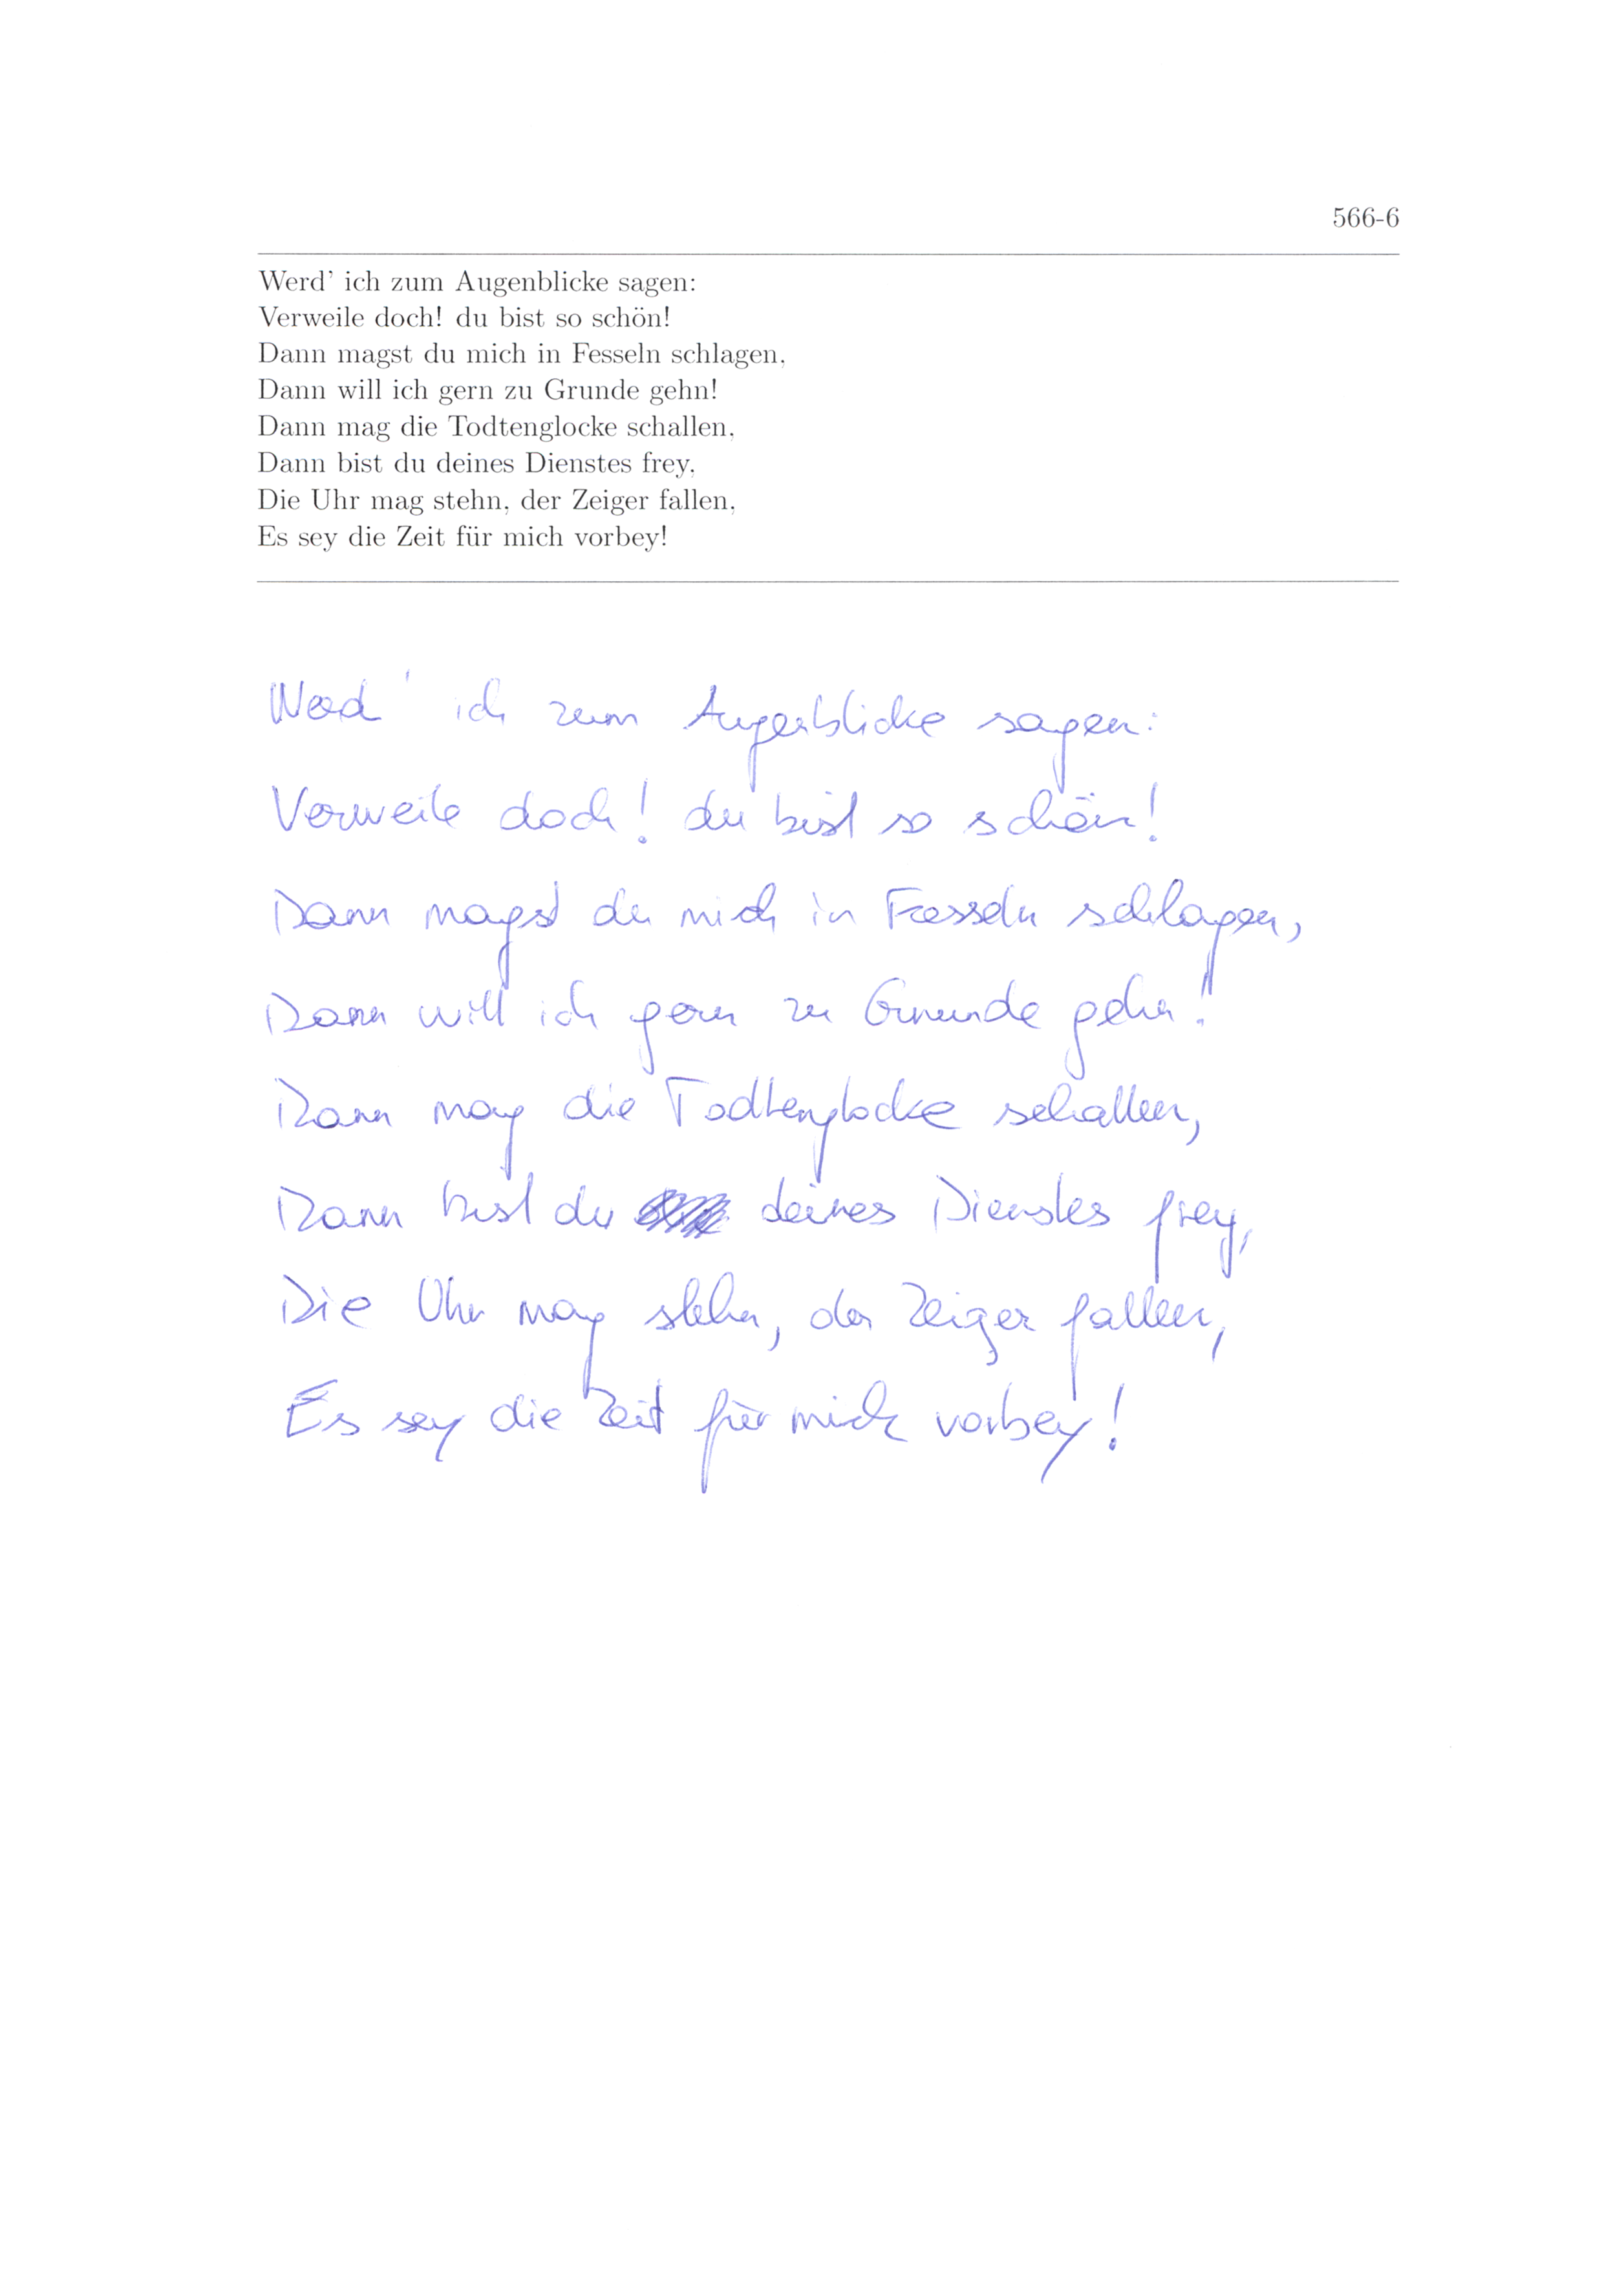 566-6
Werd' ich zum Augenblicke sagen:
Verweile doch! du bist so schön!
Dann magst du mich in Fesseln schlagen,
Dann will ich gern zu Grunde gehn!
Dann mag die Todtenglocke schallen,
Dann bist du deines Dienstes frey,
Die Uhr mag stehn, der Zeiger fallen,
Es sey die Zeit für mich vorbey!
Werd' ich zum Augenblicke sagen:
Verweile doch! du bist so schön!
Dann magst du mich in Fesseln schlagen,
Dann will ich gern zu Grunde gehn!
Dann mag die Todtenglocke schallen,
Dann bist du deines Dienstes frey,
Die Uhr mag stehn, der Zeiger fallen,
Es sey die Zeit für mich vorbey!